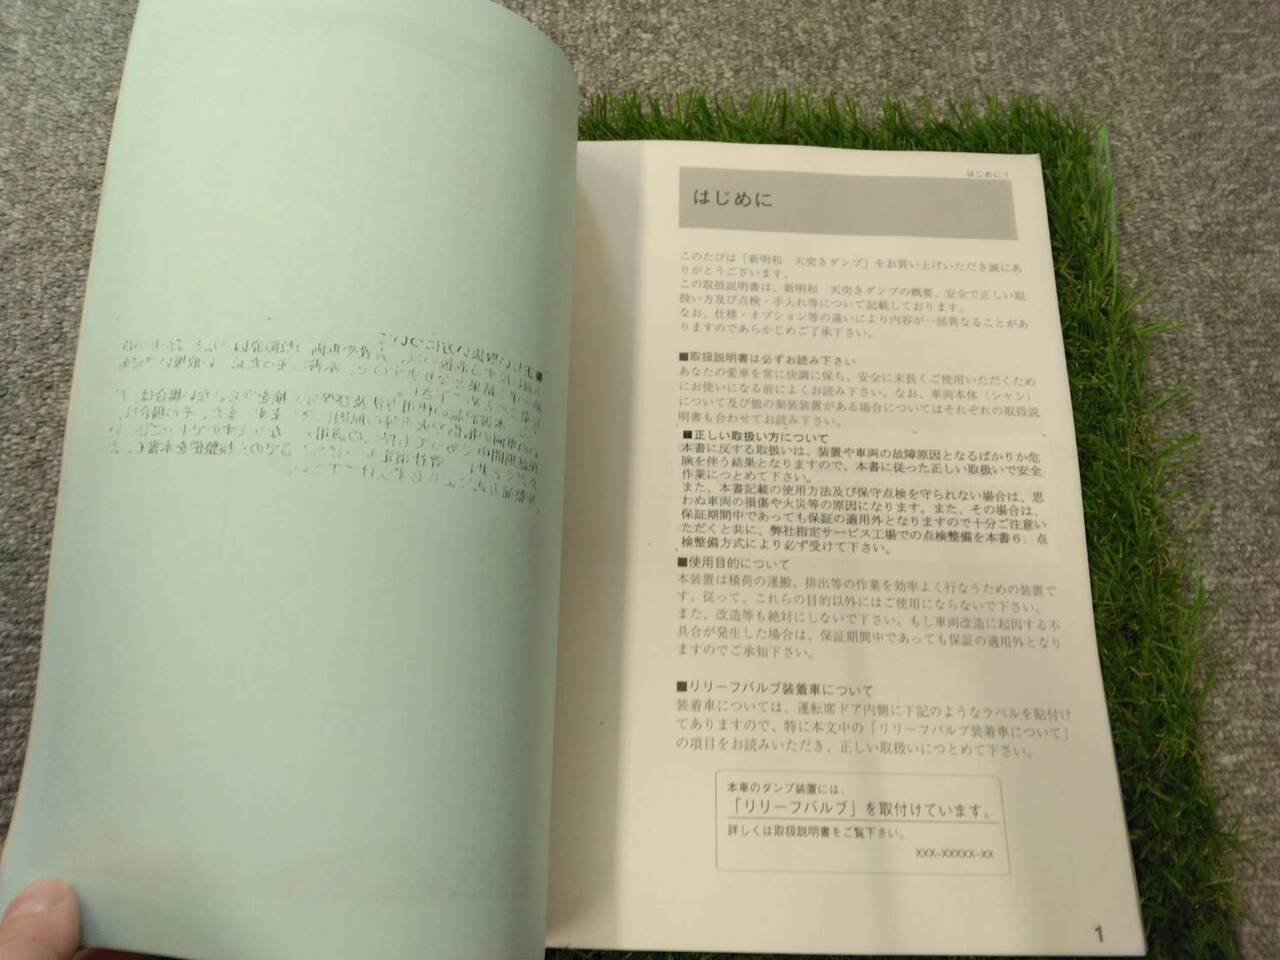 はじめに 1
はじめに
このたびは「新明和　天突きダンプ」をお買い上げいただき誠にあ
りがとうございます。
この取扱説明書は、新明和　天突きダンプの概要、安全で正しい取
扱い方及び点検・手入れ等について記載しております。
なお、仕様・オプション等の違いにより内容が一部異なることがあ
りますのであらかじめご了承下さい。
■取扱説明書は必ずお読み下さい
あなたの愛車を常に快調に保ち、安全に末長くご使用いただくため
にお使いになる前によくお読み下さい。なお、車両本体（シャシ）
について及び他の架装装置がある場合についてはそれぞれの取扱説
明書も合わせてお読み下さい。
■正しい取扱い方について
本書に反する取扱いは、装置や車両の故障原因となるばかりか危
険を伴う結果となりますので、本書に従った正しい取扱いで安全
作業につとめて下さい。
また、本書記載の使用方法及び保守点検を守られない場合は、思
わぬ車両の損傷や火災等の原因になります。また、その場合は、
保証期間中であっても保証の適用外となりますので十分ご注意い
ただくと共に、弊社指定サービス工場での点検整備を本書6．点
検整備方式により必ず受けて下さい。
■使用目的について
本装置は積荷の運搬、排出等の作業を効率よく行なうための装置で
す。従って、これらの目的以外にはご使用にならないで下さい。
また、改造等も絶対にしないで下さい。もし車両改造に起因する不
具合が発生した場合は、保証期間中であっても保証の適用外となり
ますのでご承知下さい。
■リリーフバルブ装着車について
装着車については、運転席ドア内側に下記のようなラベルを貼付け
てありますので、特に本文中の「リリーフバルブ装着車について」
の項目をお読みいただき、正しい取扱いにつとめて下さい。
本車のダンプ装置には、
「リリーフバルブ」を取付けています。
詳しくは取扱説明書をご覧下さい。
XXX-XXXXX-XX
1